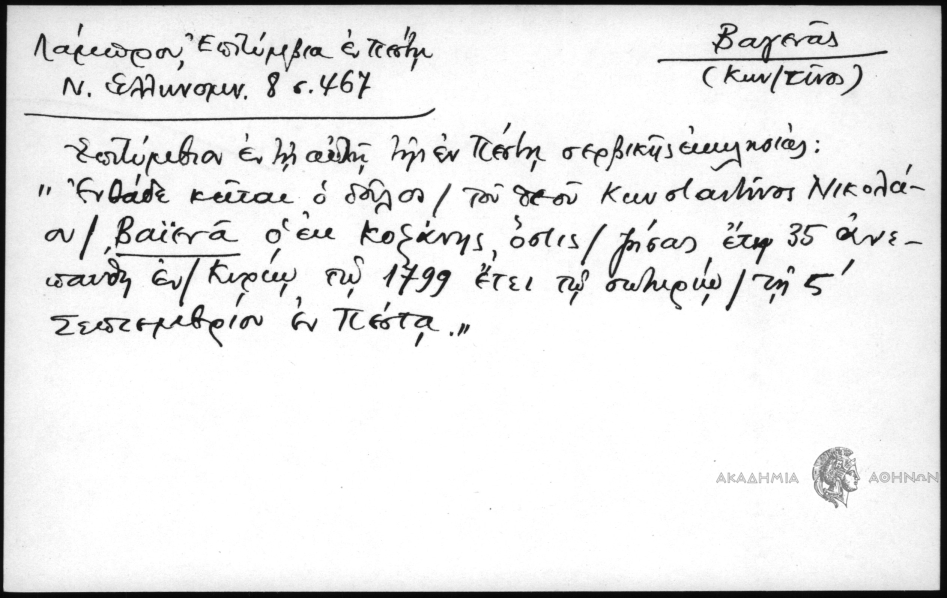 Λάμπρου, Ἐπιτύμβια ἐν Πέστῃ
Ν. Ἑλληνομν. 8 σ. 467
Βαγενᾶς
(Κων/τῖνος)
Ἐπιτύμβιον ἐν τῇ αὐλῇ τῆς ἐν Πέστῃ σερβικῆς ἐκκλησίας:
"Ἐνθάδε κεῖται ὁ δοῦλος / τοῦ θεοῦ Κωνσταντῖνος Νικολά-
ου / Βαϊενᾶ ὁ ἐκ Κοζάνης, ὅστις / ζήσας ἔτη 35 ἀνε-
παύθη ἐν / Κυρίῳ τῷ 1799 ἔτει τῷ σωτηρίῳ / τῇ 5
Σεπτεμβρίου ἐν Πέστᾳ."
ΑΚΑΔΗΜΙΑ ΑΘΗΝΩΝ